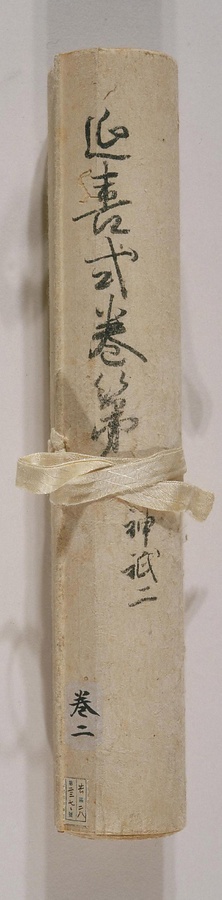 延喜式巻第
神祇二
巻二